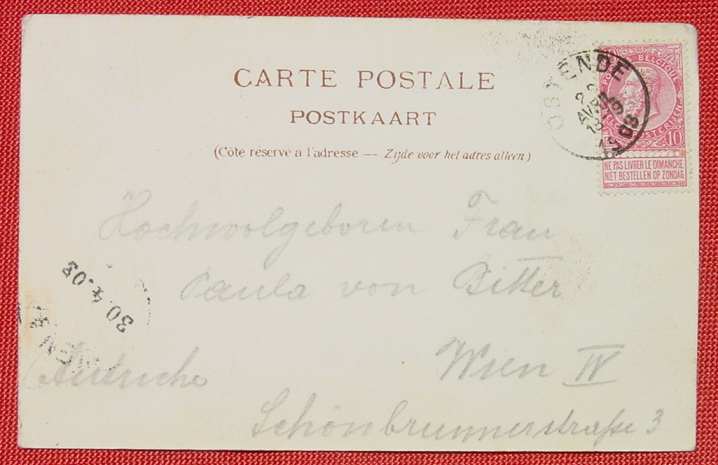 CARTE POSTALE
POSTKAART
(Côté réservé à l'adresse — Zijde voor het adres alleen)
OSTENDE
BELGIQUE
10
NE PAS LIVRER LE DIMANCHE
NIET BESTELLEN OP ZONDAG
Hochwolgeboren Frau
Paula von Bitter
Wien IV
Autriche
Schönbrunnerstraße 3
30.4.03